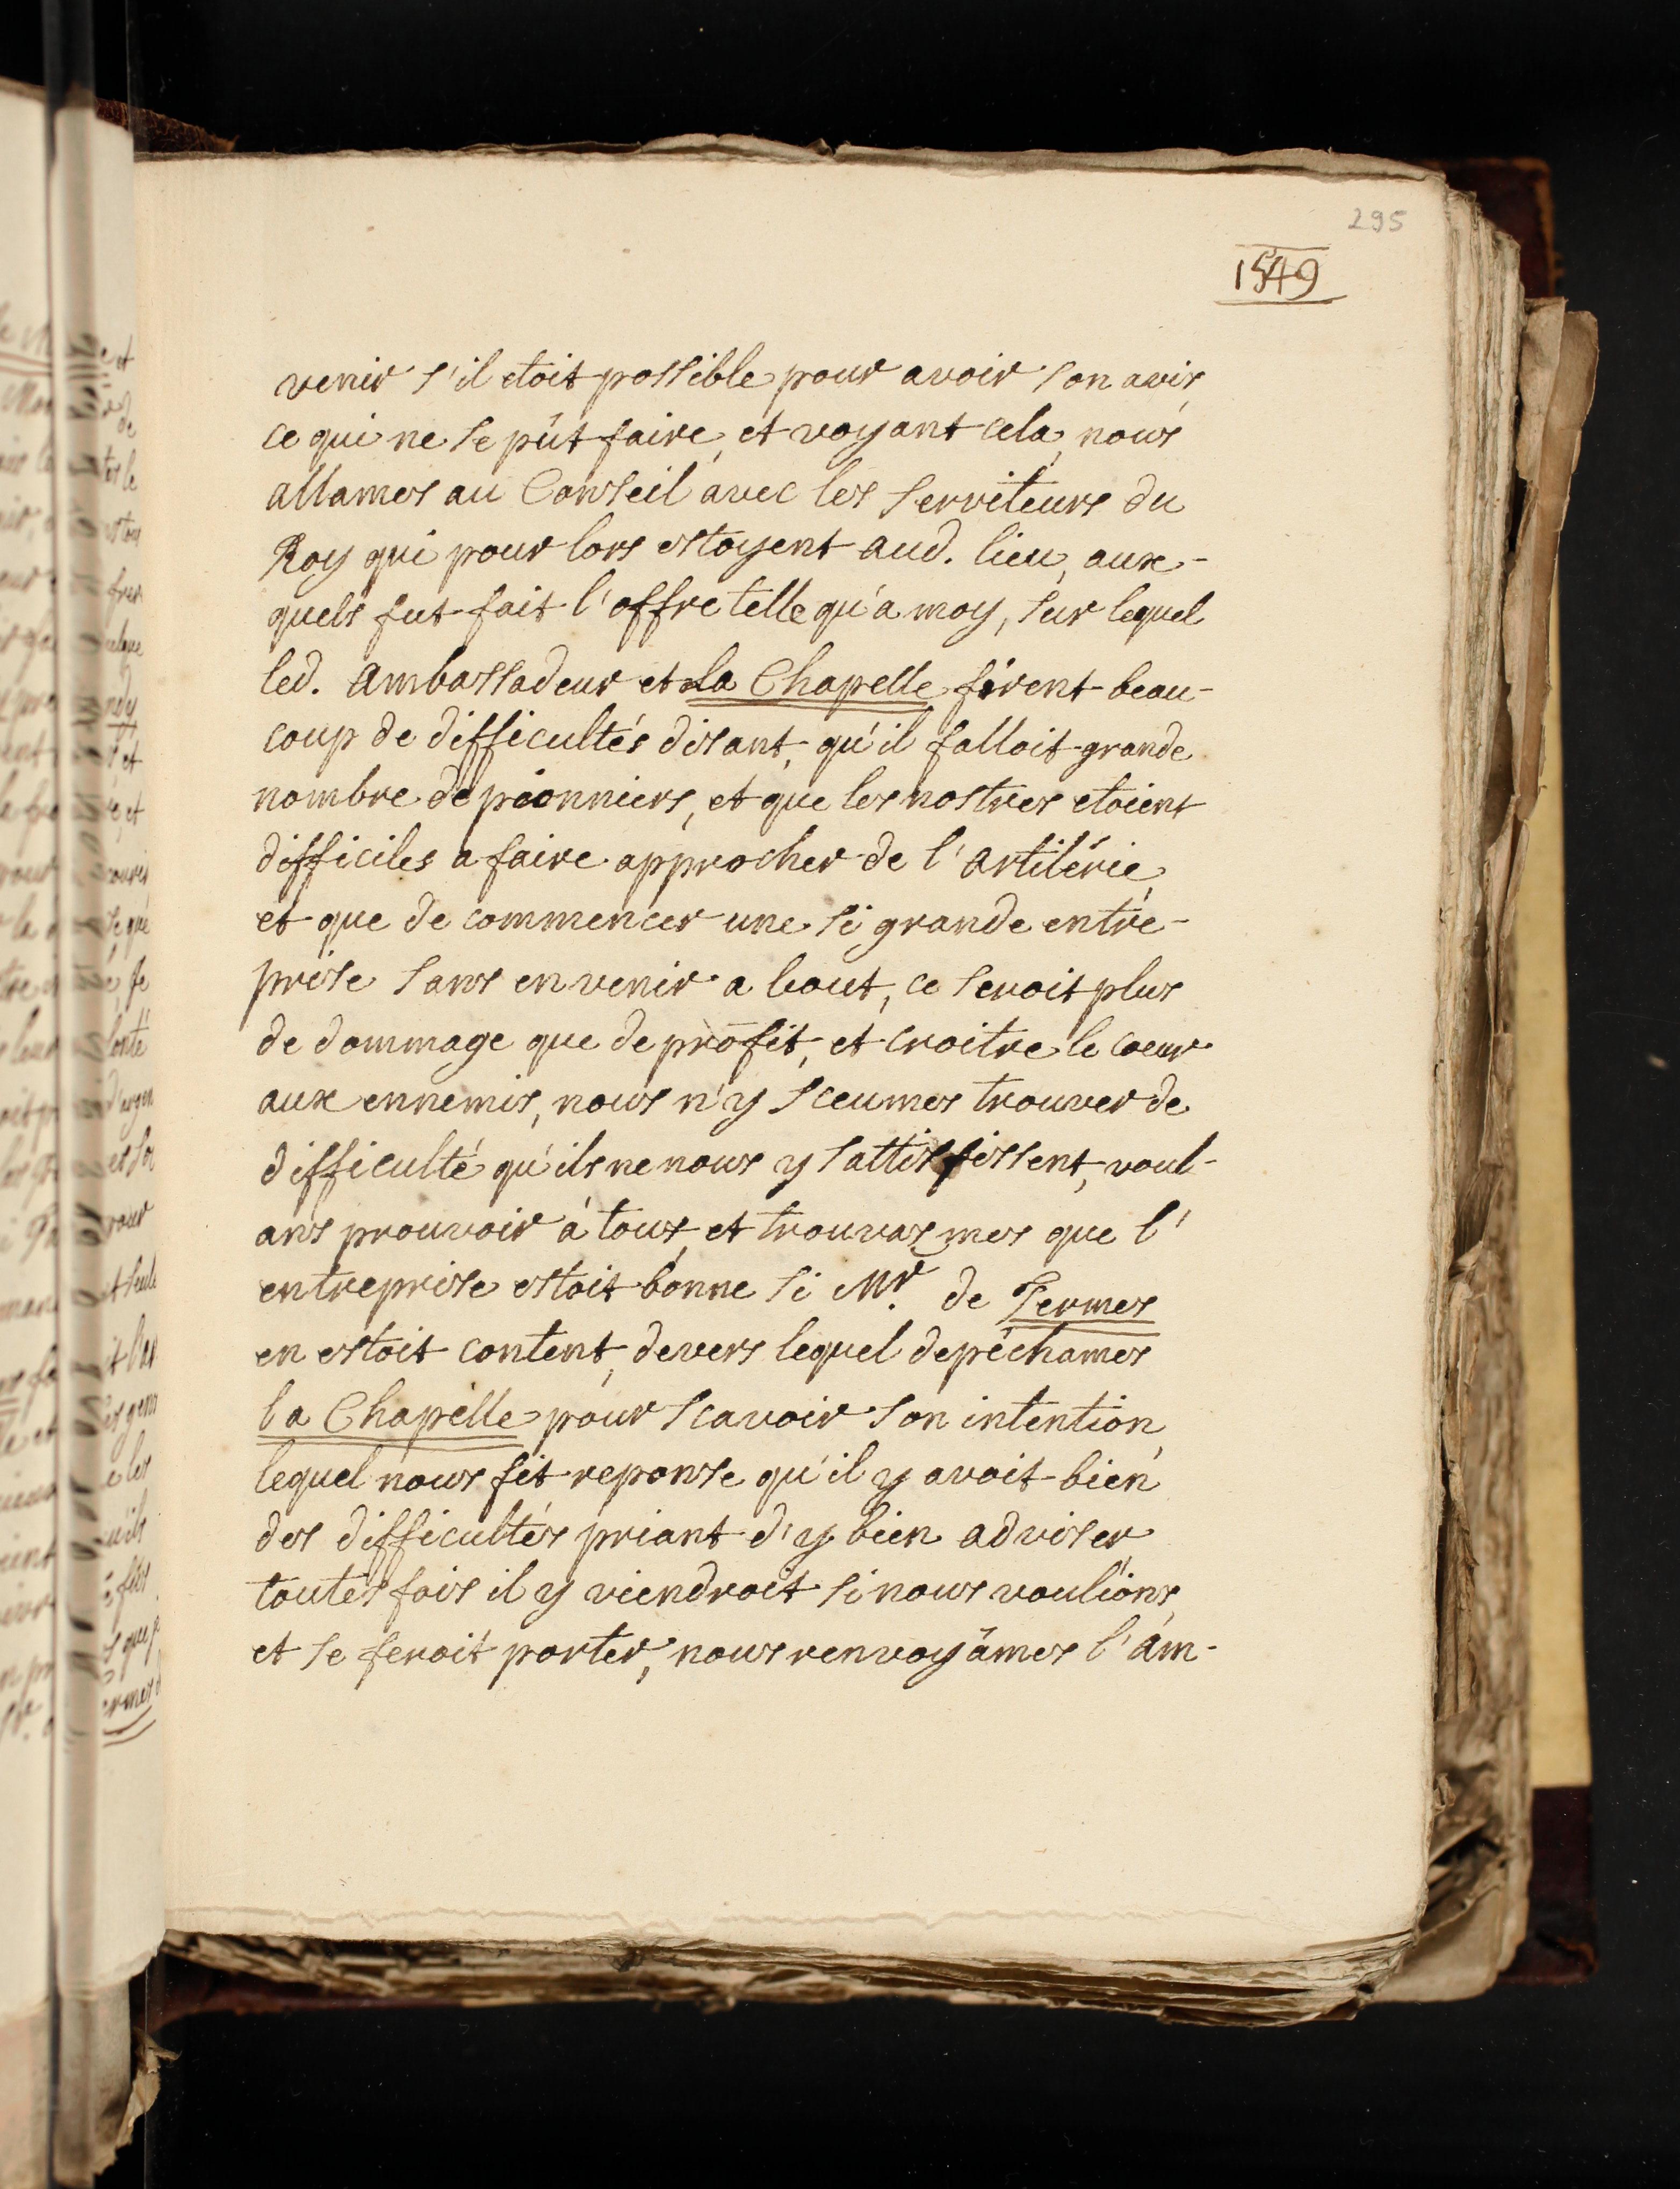 295
1549
venir s'il etoit possible pour avoir son avis,
ce qui ne se pût faire, et voyant cela, nous
allames au Conseil avec les serviteurs du
Roy qui pour lors estoyent aud. lieu, aux-
quels fut fait l'offre telle qu'a moy, sur lequel
led. ambassadeur et La Chapelle firent beau-
coup de difficultés disant, qu'il falloit grande
nombre de pionniers, et que les nostres etoient
difficiles a faire approcher de l'artilérie,
et que de commencer une si grande entre-
prise sans en venir a bout, ce seroit plus
de dommage que de profit, et croitre le coeur
aux ennemis, nous n'y sceumes trouver de
difficulté qu'ils ne nous y sattisfissent, voul-
ans prouvoir à tous, et trouvasmes que l'
entreprise estoit bonne si Mr. de Termes
en estoit content, devers lequel depéchames
la Chapelle pour scavoir son intention,
lequel nous fit reponse qu'il y avoit bien
des difficultés priant d'y bien adviser,
toutes fois il y viendroit si nous voulions,
et se feroit porter, nous renvoyâmes l'am-